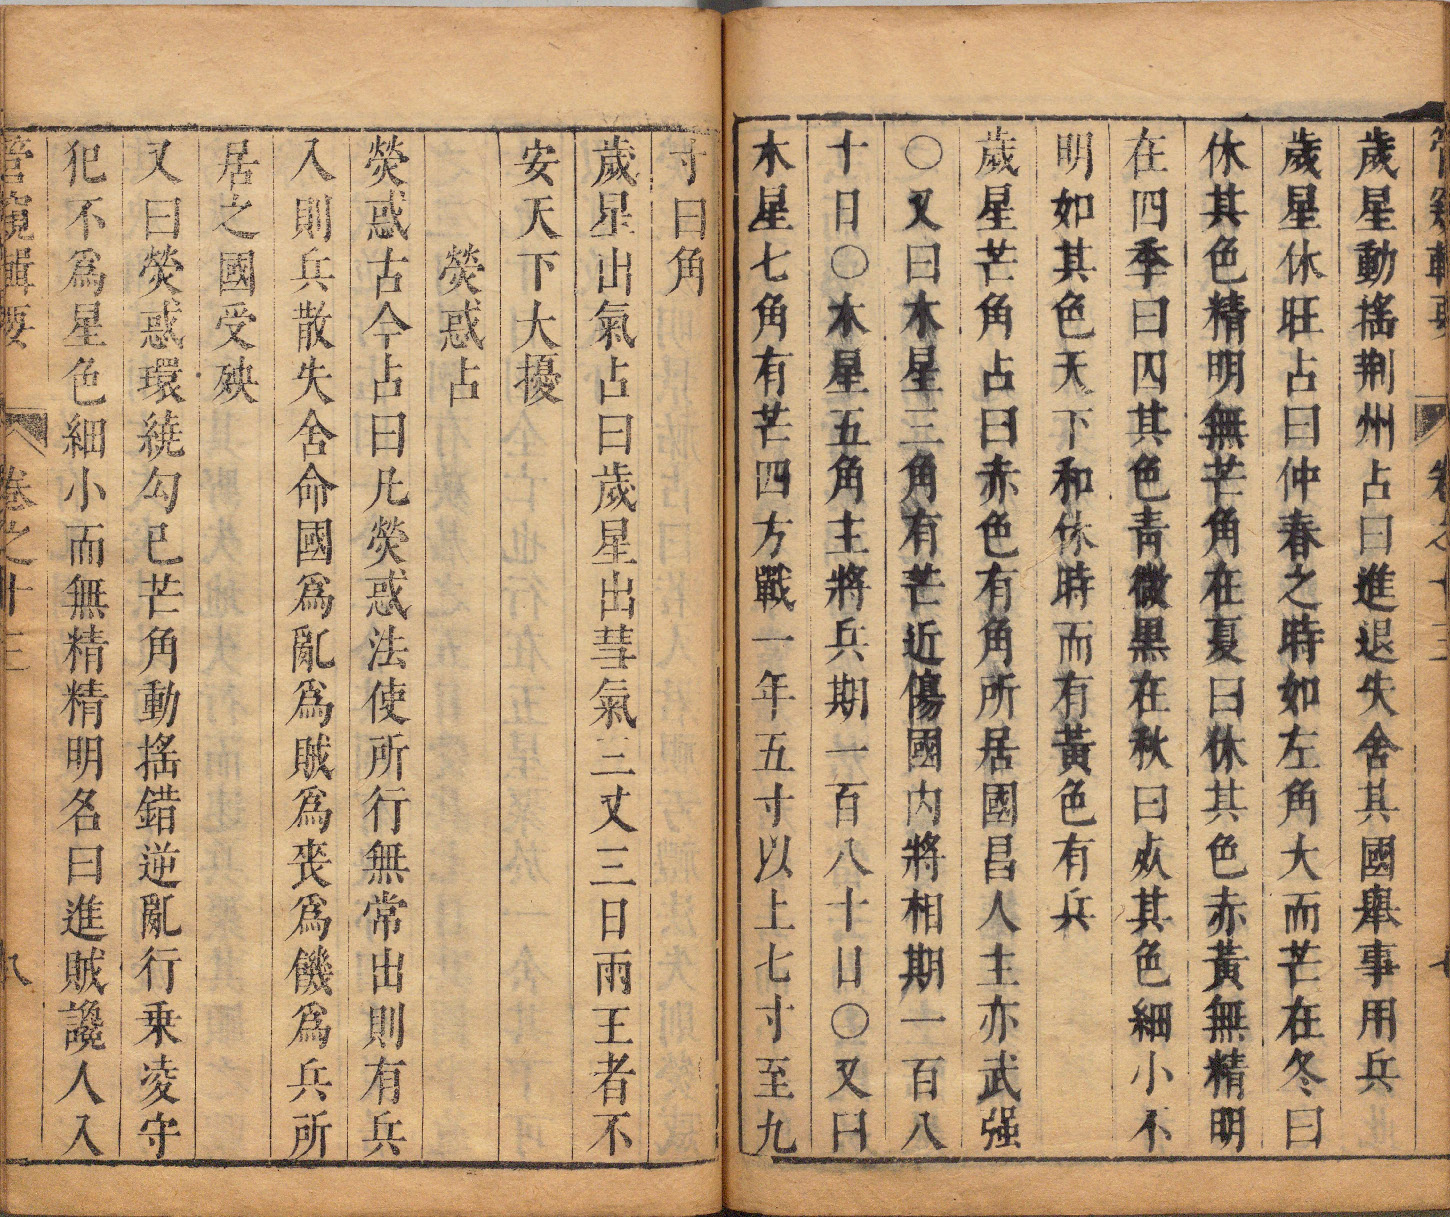 管窺輯要 卷之十三 七
歲星動搖荆州占曰進退失舍其國舉事用兵
歲星休旺占曰仲春之時如左角大而芒在冬曰
休其色精明無芒角在夏曰休其色赤黃無精明
在四季曰囚其色青微黑在秋曰死其色細小不
明如其色天下和休時而有黃色有兵
歲星芒角占曰赤色有角所居國昌人主亦武强
〇又曰木星三角有芒近傷國內將相期一百八
十日〇木星五角主將兵期一百八十日〇又曰
木星七角有芒四方戰一年五寸以上七寸至九
寸曰角
歲星出氣占曰歲星出彗氣三丈三日雨王者不
安天下大擾
熒惑占
熒惑古今占曰凡熒惑法使所行無常出則有兵
入則兵散失舍命國爲亂爲賊爲喪爲饑爲兵所
居之國受殃
又曰熒惑環繞勾巳芒角動搖錯逆亂行乗凌守
犯不爲星色細小而無精精明名曰進賊讒人入
管窺輯要 卷之十三 八